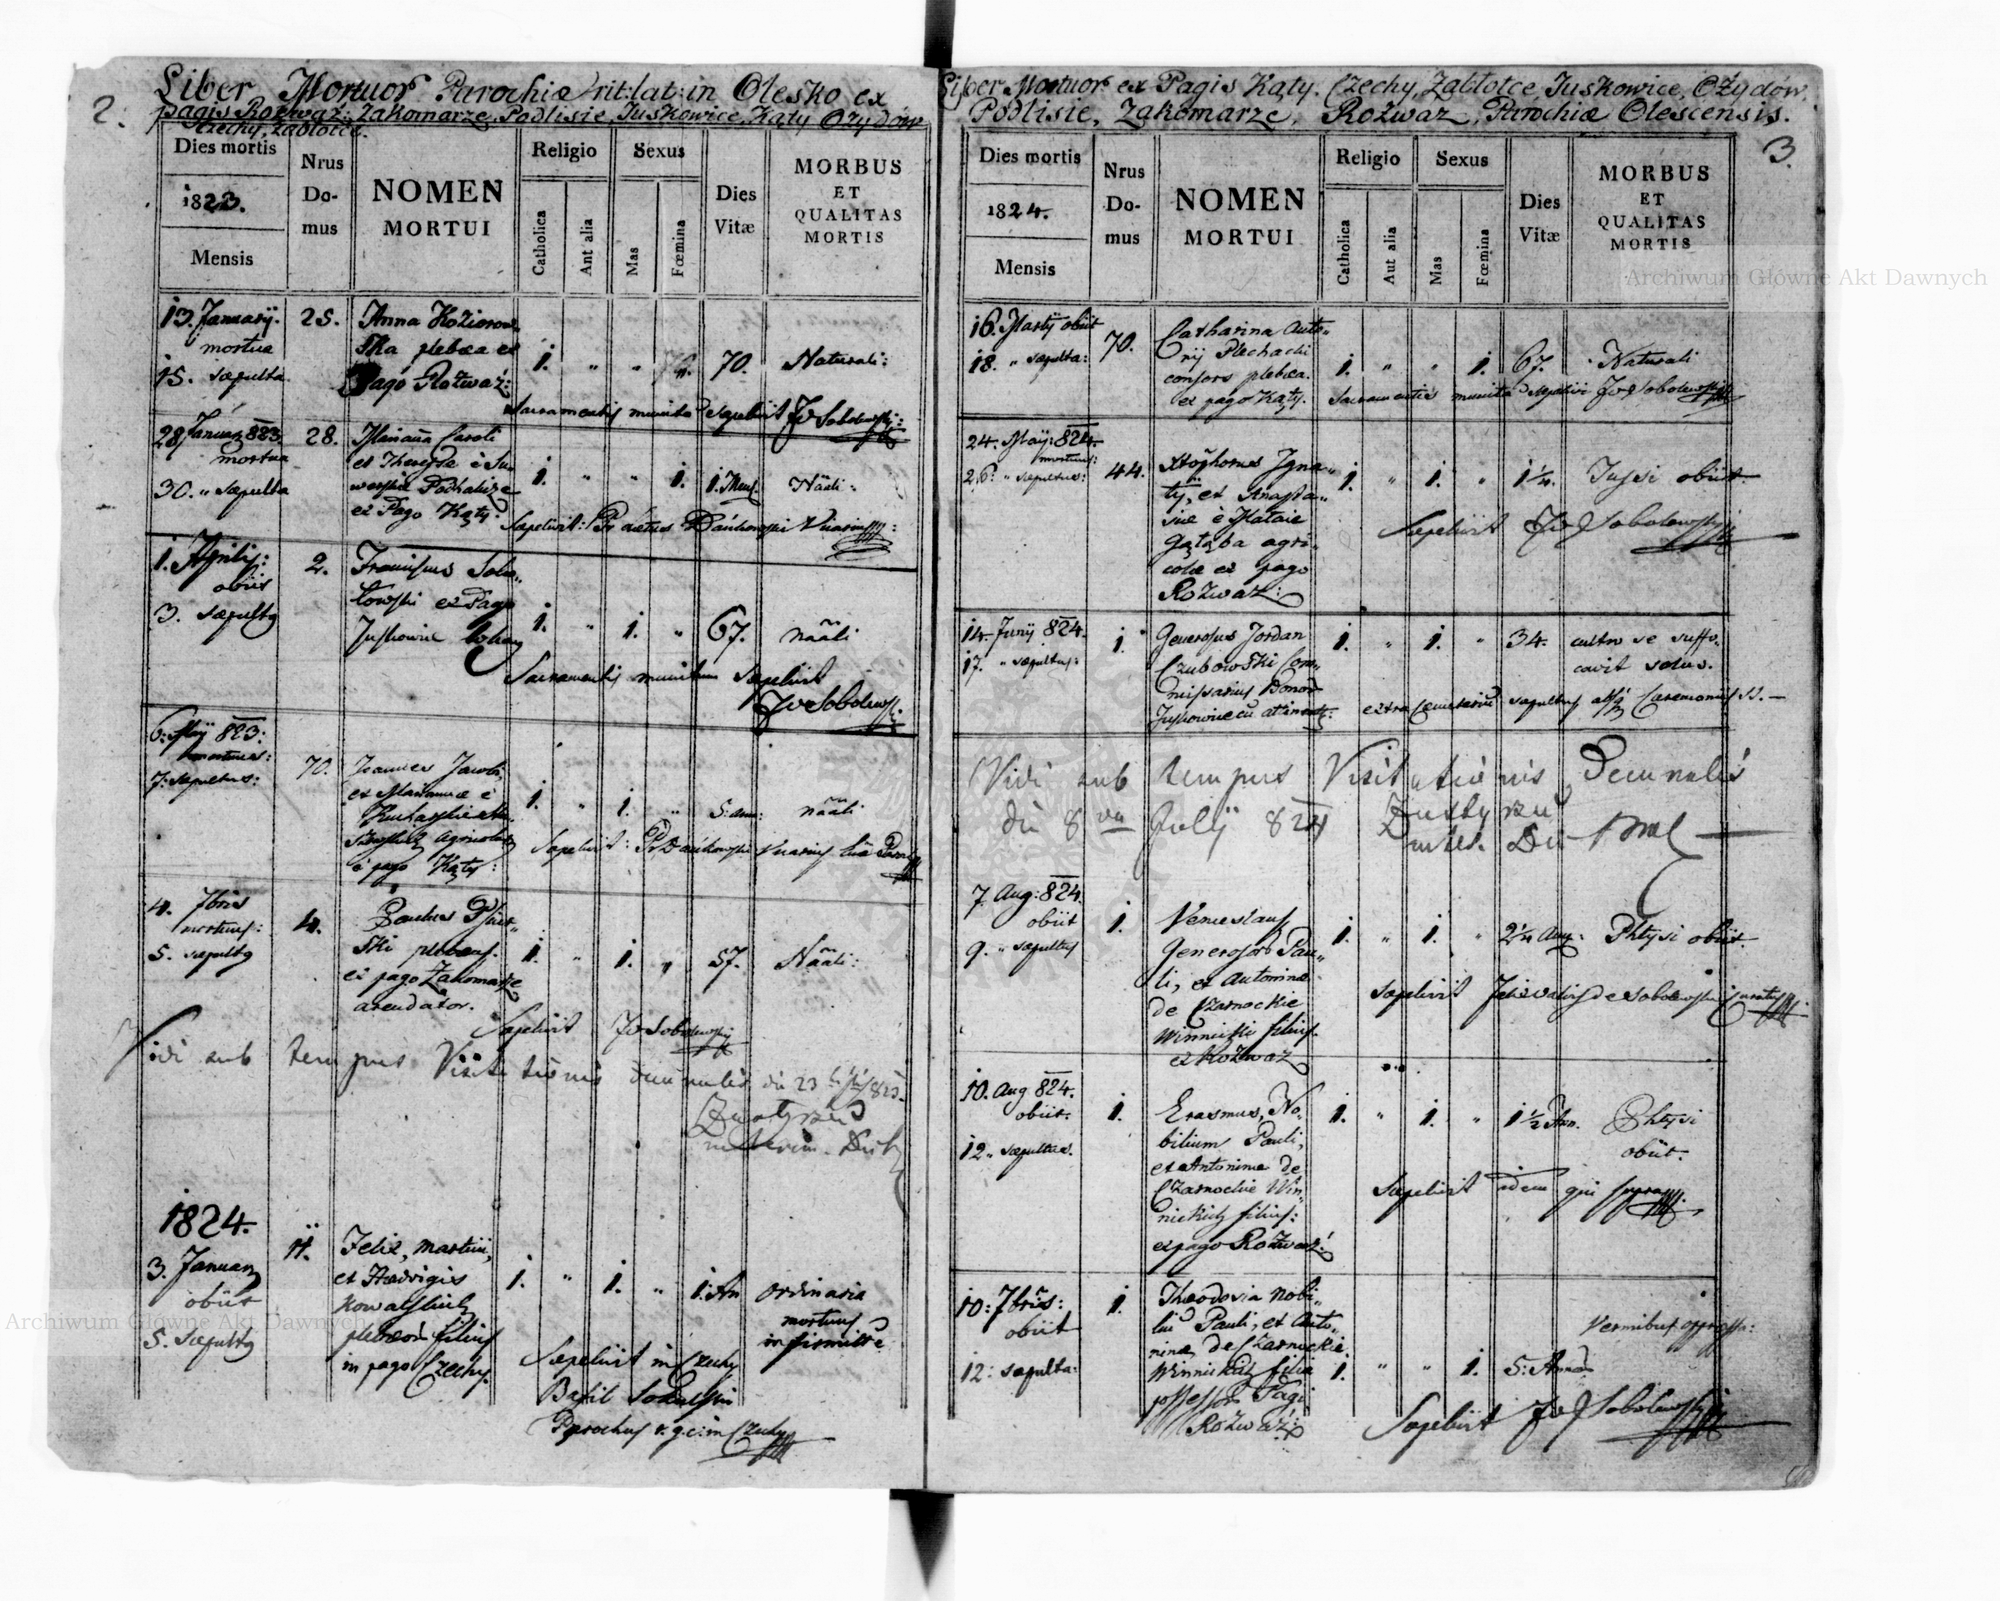 2.
Liber Mortuor Parochiæ rit: lat: in Olesko ex
pagis Rożważ, Zakomarze, Podlisie, Juskowice, Kąty Ożydów
Czechy, Zabłotce.
Dies mortis
1823.
Mensis
Nrus
Do-
mus
NOMEN
MORTUI
Religio
Catholica
Aut alia
Sexus
Mas
Fœmina
Dies
Vitæ
MORBUS
ET
QUALITAS
MORTIS
13. Januarÿ.
mortua
15. sæpulta
25.
Anna Koziorow
ska plebæa ex
Pago Rożważ:
1. " " 70. Naturali:
Sacramentis munita sepelivit Jv Sobolewski:
28 Januar 823.
mortua
30. " sæpulta
28.
Mariana Caroli
et Theresiæ è
ex Pago Kąty:
1. " " 1. 1. Mens. Nääli:
Sæpelivit: Dańkowski Vicarius
1. Aprilis:
obiit
3. sæpultus
2.
Franciscus Sobo
lowski ex Pago
Juskowice
1. " 1. " 67. nääli
Sacramentis munitum sæpelivit
Jv Sobolews.
6. Maÿ 823:
mortuus:
7. sæpultus:
70.
Joannes Jacobi,
et Mariannæ è
agricolarum
è pago Kąty:
1. " 1. " 5. ann: nääli
Sæpelivit: Dańkowski Vicarius
4. 7bris
mortuus:
5. sæpultus
4.
Paulus
ski plebeus.
ex pago Zakomarze
arendator.
1. " 1. " 57. Nääli:
Sæpelivit Jv Sobolewski
Vidi sub tempus Visitationis decanalis die 23 823.
1824.
3. Januar
obiit
5. Sæpultus
11.
Felix, Martini,
et Hedvigis
Kowalskich
plebæor filius
in pago Czechy.
1. " 1. " 1. An ordinaria
mortuus
Sæpelivit in Czechy
Basil Sokulski
Parochus r. g. c: in Czechy
Liber Mortuor ex Pagis Kąty, Czechy, Zabłotce, Juskowice, Ożydów,
Podlisie, Zakomarze, Rożwaz, Parochiæ Olescensis.
3.
Dies mortis
1824.
Mensis
Nrus
Do-
mus
NOMEN
MORTUI
Religio
Catholica
Aut alia
Sexus
Mas
Fœmina
Dies
Vitæ
MORBUS
ET
QUALITAS
MORTIS
Archiwum Główne Akt Dawnych
16. Martÿ obiit
18. " sæpulta:
70.
Catharina Anto-
nij Plechachi
consors plebæa.
ex pago Kąty.
1. " " 1. 67. Naturali
Sacramentis munita sepelivi Jv Sobolewski
24. Maÿ: 824.
mortuus:
26. " sæpultus:
44.
Xtophorus Igna-
tÿ, et Anasta-
siæ è Mataie
Gałąba agri-
colæ ex pago
Rożwaz:
1. " 1. " 1 1/4. Tussi obiit
Sæpelivit Jv J Sobolewski
14. Junÿ 824.
17. " sæpultus:
1.
Generosus Jordan
Czubowski Com-
missarius Bonor
1. " 1. " 34. cultro se suffo-
cavit solus.
extra Cæmeterium sæpultus absq Cæremoniis SS. —
Vidi sub tempus Visitationis Decanalis
die 8va Julÿ 824
7. Aug: 824.
obiit
9. " sæpultus
1.
Venceslaus
Generosor Pau-
li, et Antoninæ
de Czarnockie
Winnicki filius.
ex Rożwaz
1. " 1. " 2 1/4 Phtysi obiit.
Sæpelivit de Sobolewski Curatus
10. Aug 824.
obiit.
12. sæpultus.
1.
Erasmus, No-
bilium Pauli,
et Antoninæ de
Czarnockie Win-
nickich filius:
ex pago Rożważ:
1. " 1. " 1 1/2 Ann. Phtysi
obiit.
Sæpelivit idem qui supra
10: 7bris:
obiit
12: sæpulta:
1.
Theodosia nobi-
liu Pauli, et Anto-
ninæ de Czarnockie
Winnickich filia
possessor Pagi
Rożważ:
1. " " 1. 5: Annor
Vermibus oppressa:
Sæpelivit Jv J Sobolewski
Archiwum Główne Akt Dawnych